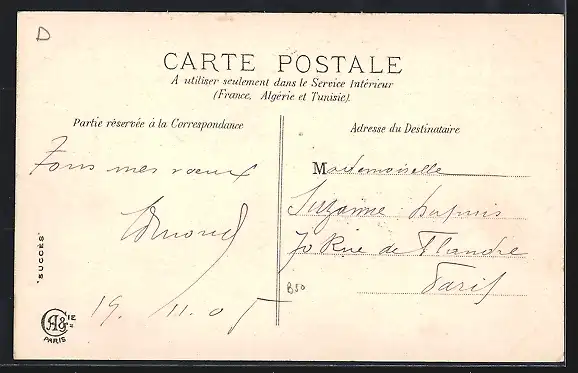 D
CARTE POSTALE
A utiliser seulement dans le Service Intérieur
(France, Algérie et Tunisie).
Partie réservée à la Correspondance
Adresse du Destinataire
Tous mes vœux
Edmond
19. 11. 05
Mademoiselle
Suzanne Dupuis
70 Rue de Flandre
Paris
B50
"SUCCÈS"
A & CIE
PARIS